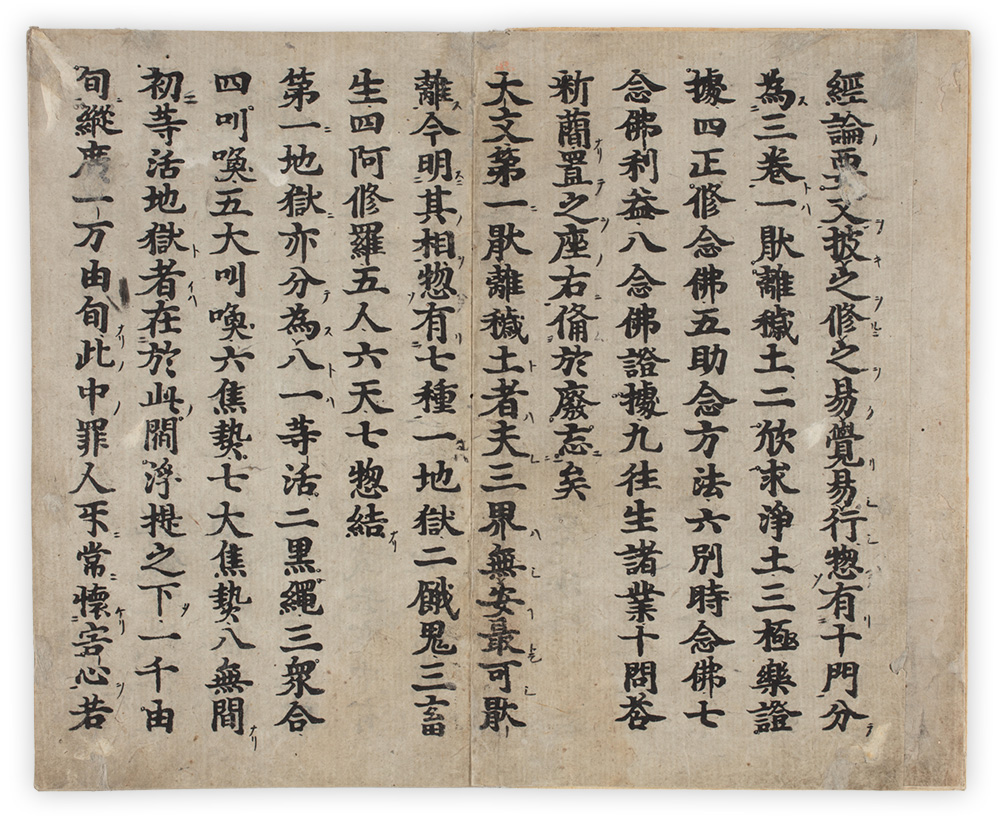 經論要文披之修之易覺易行惣有十門分
為三卷一猒離穢土二欣求淨土三極樂證
據四正修念佛五助念方法六別時念佛七
念佛利益八念佛證據九往生諸業十問荅
新蕳置之座右俻於廢忘矣
大文第一猒離穢土者夫三界無安最可猒
離今明其相惣有七種一地獄二餓鬼三畜
生四阿修羅五人六天七惣結
第一地獄亦分為八一等活二黑繩三衆合
四叫喚五大叫喚六焦𤍠七大焦𤍠八無間
初等活地獄者在於此閻浮提之下一千由
旬縱廣一万由旬此中罪人𠃔常懷害心若